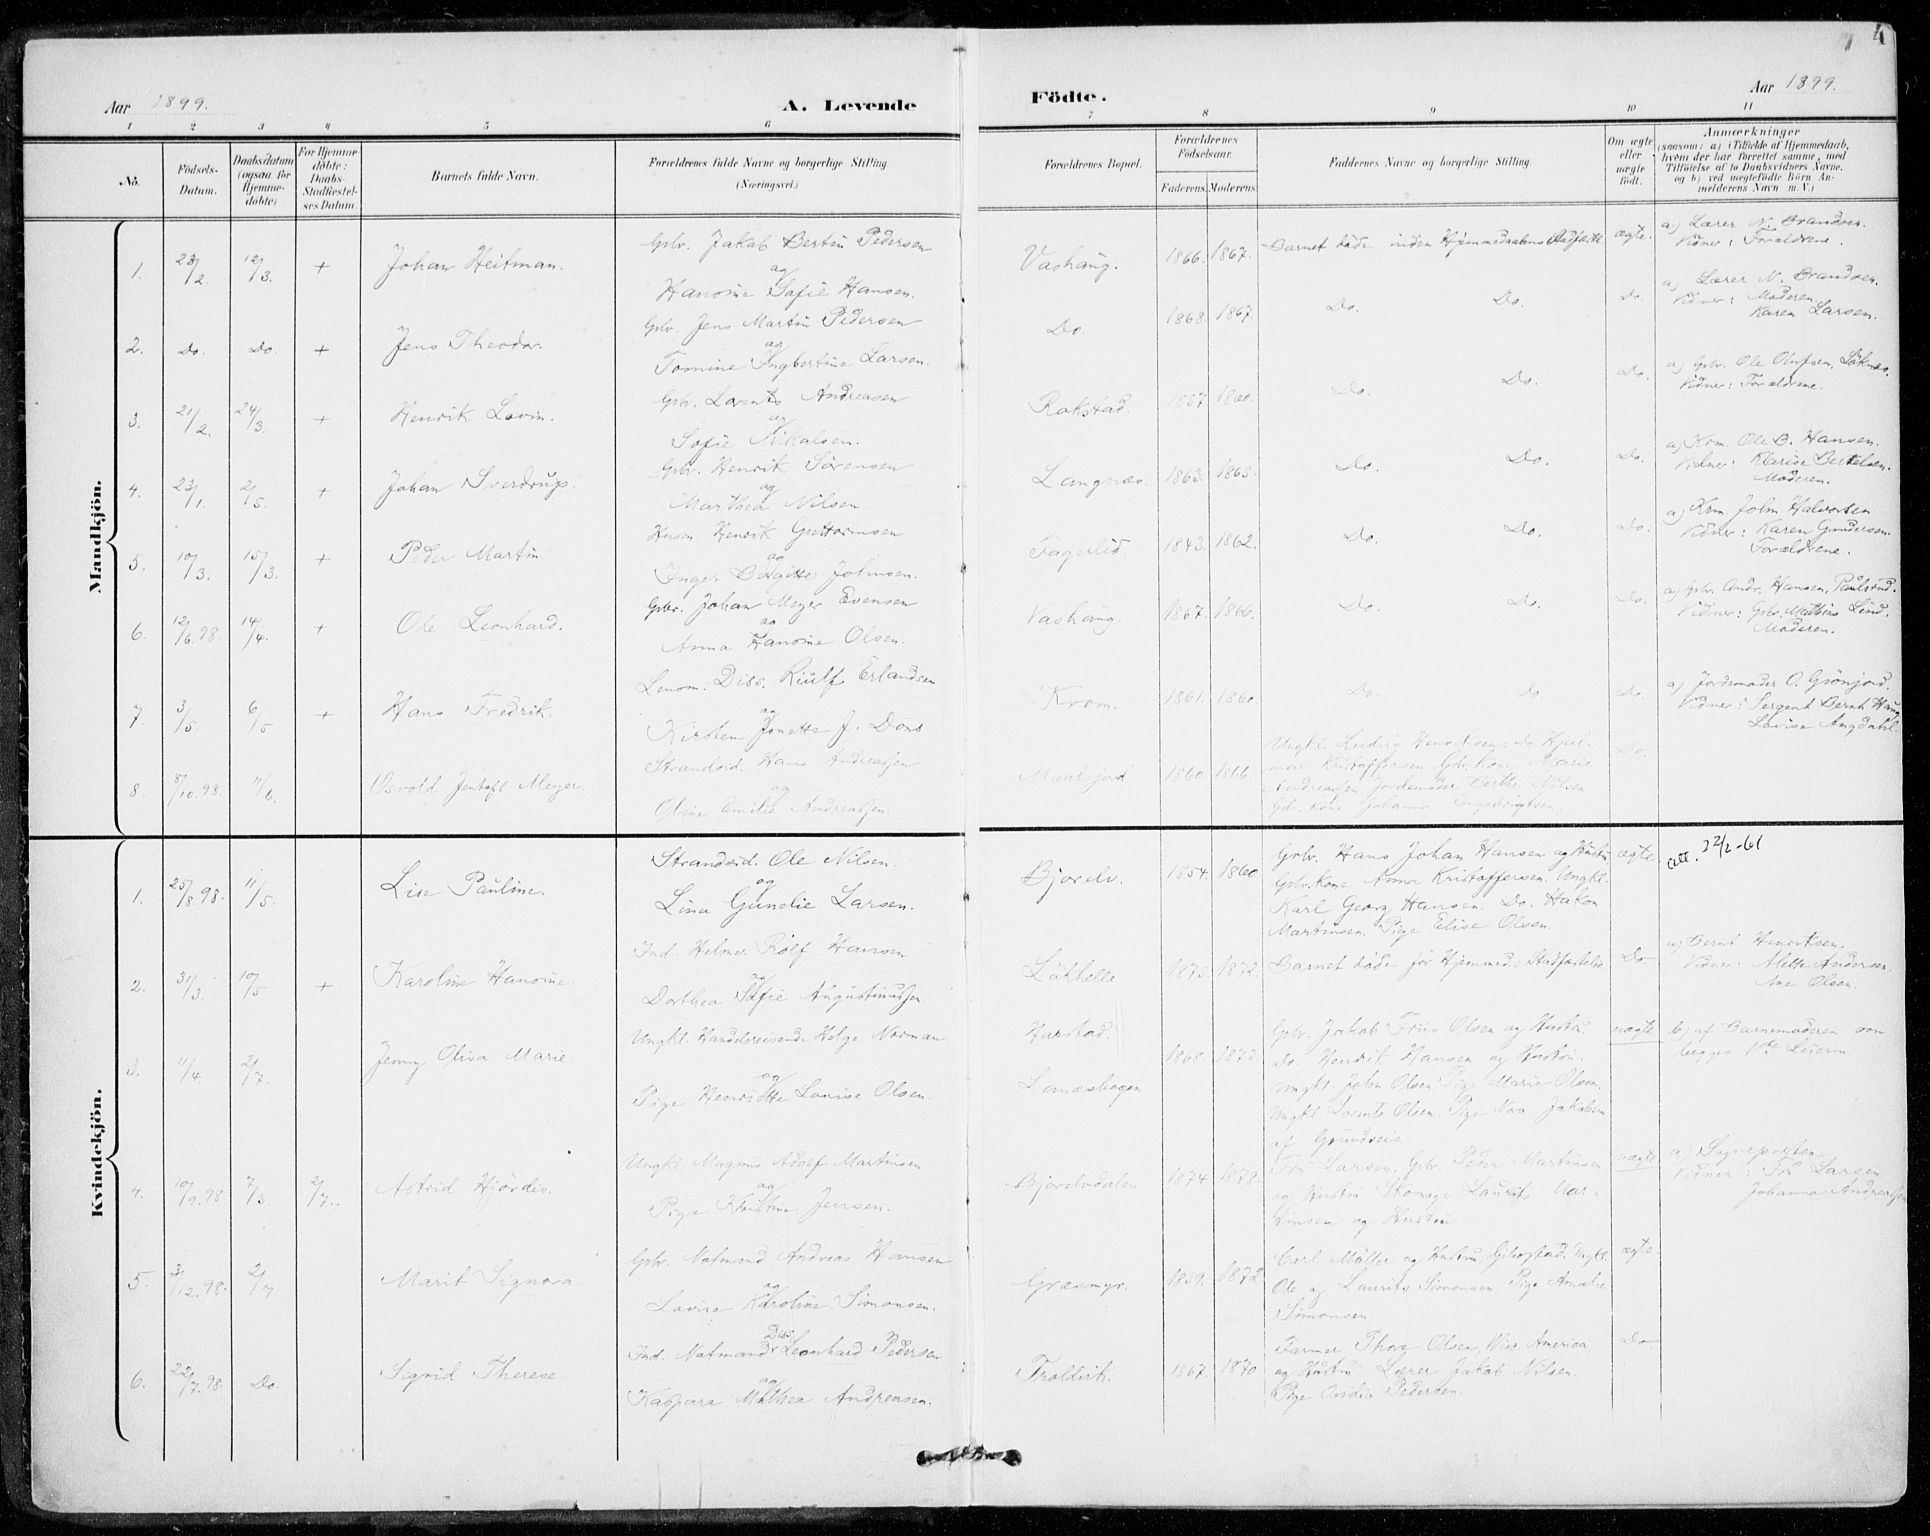 4
Aar 1899.
A. Levende
Födte.
Aar 1899.
1 2 3 4 5 6 7 8 9 10 11
No.
Födsels-
Datum.
Daabsdatum
(ogsaa for
Hjemme-
döbte)
For Hjemme-
döbte:
Daabs-
Stadfæstel-
ses Datum.
Barnets fulde Navn.
Forældrenes fulde Navne og borgerlige Stilling.
(Næringsvei.)
Forældrenes Bopæl.
Forældrenes
Födselsaar.
Faderens. Moderens.
Faddernes Navne og borgerlige Stilling.
Om ægte
eller
uægte
födt.
Anmærkninger
(saasom: a) i Tilfælde af Hjemmedaab,
hvem der har forrettet samme, med
Tilföielse af to Daabsvidners Navne,
og b) ved uægtefödte Börn An-
melderens Navn m. V.)
Mandkjön.
1. 23/2. 12/3. + Johan Heitman.
Gbr. Jakob Bertin Pedersen
og
Hansine Sofie Hansen.
Vashaug. 1866. 1867. Barnet döde inden Hjemmedaabens Stadfæst. ægte.
a) Lærer N. Brandsen.
Vidner: Forældrene.
2. Do. Do. + Jens Theodor.
Gbr. Jens Martin Pedersen
og
Tomine Ingbertine Larsen.
Do. 1868. 1867. Do. Do. Do.
a) Lærer N. Brandsen.
Vidner: Moderen
Karen Larsen.
3. 21/2. 24/3. + Henrik Lovin.
Gbr. Lorents Andreasen
og
Sofie Mikalsen.
Rokstad. 1857. 1860. Do. Do. Do.
a) Gbr. Ole Olufsen,
Vidner: Forældrene.
4. 23/1. 2/5. + Johan Sverdrup.
Gbr. Henrik Sörensen
og
Marthea Nilsen
Langnæs. 1863. 1865. Do. Do. Do.
a) Krm. Ole B. Hansen.
Vidner: Klarise Bertelsen.
Moderen.
5. 10/3. 15/3. + Peder Martin
Husm. Henrik Guttormsen
og
Inger Birgitte Johnsen.
Fagerlid. 1843. 1862. Do. Do. Do.
a) Krm. John Halvorsen
Vidner: Karen Gundersen.
Forældrene.
6. 12/6.98. 14/4. + Ole Leonhard.
Gbr. Johan Meyer Evensen
og
Anna Hansine Olsen.
Vashaug. 1867. 1866. Do. Do. Do.
a) Gbr. Andr. Hansen,
Vidner: Gbr. Mathias Lind.
Moderen.
7. 3/5. 6/5 + Hans Fredrik.
Lensm. Diss. Riulf Erlandsen
og
Kirsten Jonette J. Dons
Krom. 1861. 1860. Do. Do. Do.
a) Jordemoder O. Grönjord.
Vidner: Sergent Bernh. Haug
Lovise Angdahl.
8. 8/10.98. 11/6. Osvold Jentoft Meyer.
Strandsid. Hans Andreassen
og
Oline Emilie Andreassen.
Maalsjord 1860. 1866.
Ungkl. Ludvig Henriksen. Do. Hjal-
mar Kristoffersen. Gbr. kone Marie
Andreassen, Jordemoder Berthe Nilsen
Gbr. kone Johanna Ingebrigtsen.
Do.
Kvindekjön.
1. 25/8.98. 11/5. Lise Pauline.
Strandsid. Ole Nilsen.
og
Lina Gunelie Larsen.
Bjorelv. 1854. 1860.
Gbr. Hans Johan Hansen og Hustru
Gbr. kone Anna Kristoffersen. Ungkl.
Karl Georg Hansen. Do. Hakon
Martinsen. Pige Elise Olsen.
ægte.
att. 22/2-61
2. 31/3. 10/5 + Karoline Hansine.
Ind. Helmer Rolf Hansen
og
Dorthea Sofie Augustinussen
1875. 1872. Barnet döde för Hjemmed: Stadfæstelse Do
a) Bernt Henriksen.
Vidner: Alette Andersen
Ane Olsen.
3. 11/4. 2/7. Jenny Oliva Marie.
Ungkl. Handelsreisende Helge Norman
og
Pige Henriette Lovise Olsen.
Harstad.
Lanesbogen
1868. 1873
Gbr. Jakob Friis Olsen og Hustru
Do. Henrik Hansen og Hustru.
Ungkl. John Olsen Pige Marie Olsen.
Ungkl. Lorents Olsen. Pige Jakobsen
af Grundreis.
uægte
b) af Barnemoderen som
begges Leierm
4. 10/9.98 7/3. 2/7. Astrid Hjördis.
Ungkl. Magnus Adolf Martinsen
og
Pige Kristine Jensen.
Bjorelvdalen. 1874 1878.
Larsen. Gbr. Peder Martinsen
og Hustru. Skomager Laurits Mar-
tinsen og Hustru
uægte
a) Sogneprsten.
Vidner: Larsen
Johanna Andreassen
5. 3/12.98. 2/7 Marit Signora
Gbr. Notmand Andreas Hansen
og
Lovise Karoline Simonsen.
Græsmyr. 1859. 1872
Carl Möller og Hustru, Gibostad. Ungkl.
Ole og Laurits Simonsen. Pige Amalie
Simonsen
ægte.
6. 22/7.98. Do. Sigrid Therese
Ind. Notmand Diss. Leonhard Pedersen
og
Kaspara Mathea Andreasen.
Troldvik. 1867. 1870
Farmer Thore Olsen, Wisc. America
og Hustru. Lærer Jakob Nilsen.
Pige Ovidia Pedersen.
Do